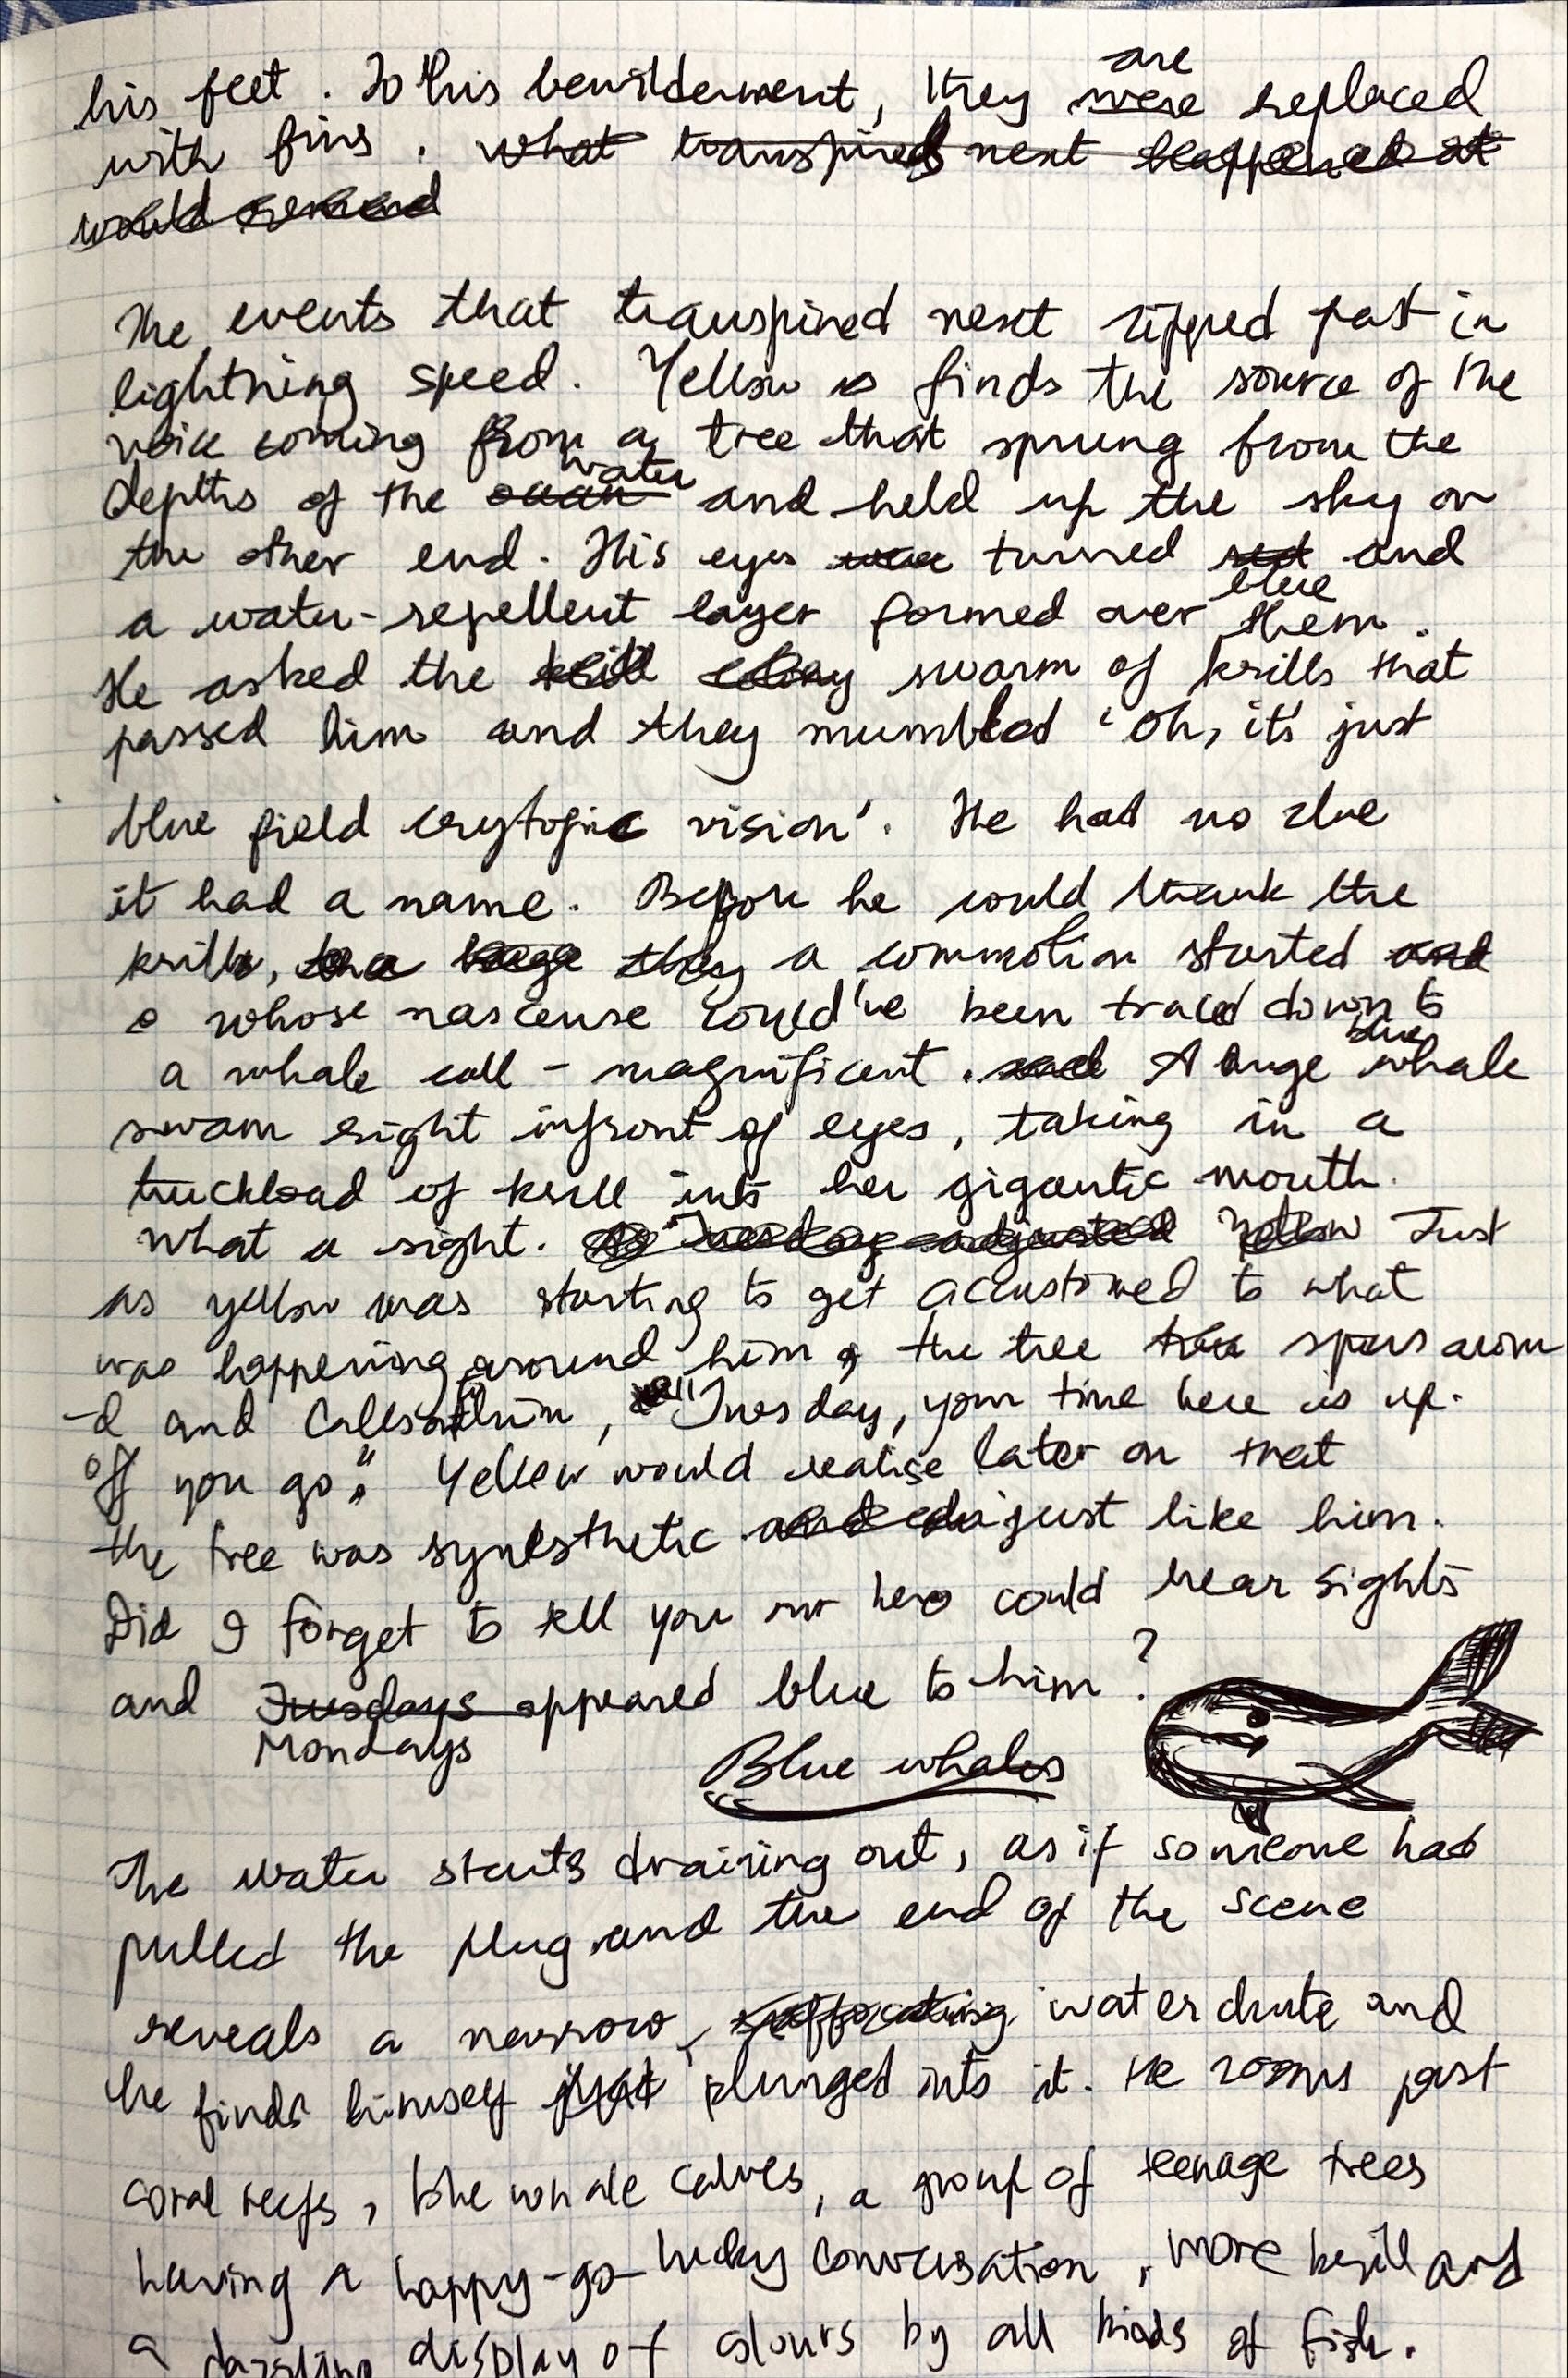 are
his feet. To his bewilderment, they were replaced
with fins. what transpired next happened at
would
The events that transpired next zipped past in
lightning speed. Yellow is finds the source of the
voice coming from a tree that sprung from the
water
depths of the ocean and held up the sky on
the other end. His eyes were turned red and
blue
a water-repellent layer formed over them.
He asked the krill colony swarm of krills that
passed him and they mumbled 'Oh, it's just
blue field vision'. He had no clue
it had a name. Before he could thank the
krills, they a commotion started and
whose nascense could've been traced down to
blue
a whale call - magnificent. and A huge whale
swam right infront of eyes, taking in a
truckload of krill into her gigantic mouth.
What a sight. As Tuesday adjusted Yellow Just
as yellow was starting to get accustomed to what
was happening around him, the tree spurs aroun
-d and calls to him, "Tuesday, your time here is up.
Off you go". Yellow would realise later on that
the tree was synesthetic and just like him.
Did I forget to tell you our hero could hear sights
and Tuesdays appeared blue to him?
Mondays
Blue whales
The water starts draining out, as if someone had
pulled the plug and the end of the scene
reveals a narrow, suffocating water chute and
he finds himself just plunged into it. He zooms past
coral reefs, blue whale calves, a group of teenage trees
having a happy-go-lucky conversation, more krill and
a dazzling display of colours by all kinds of fish.